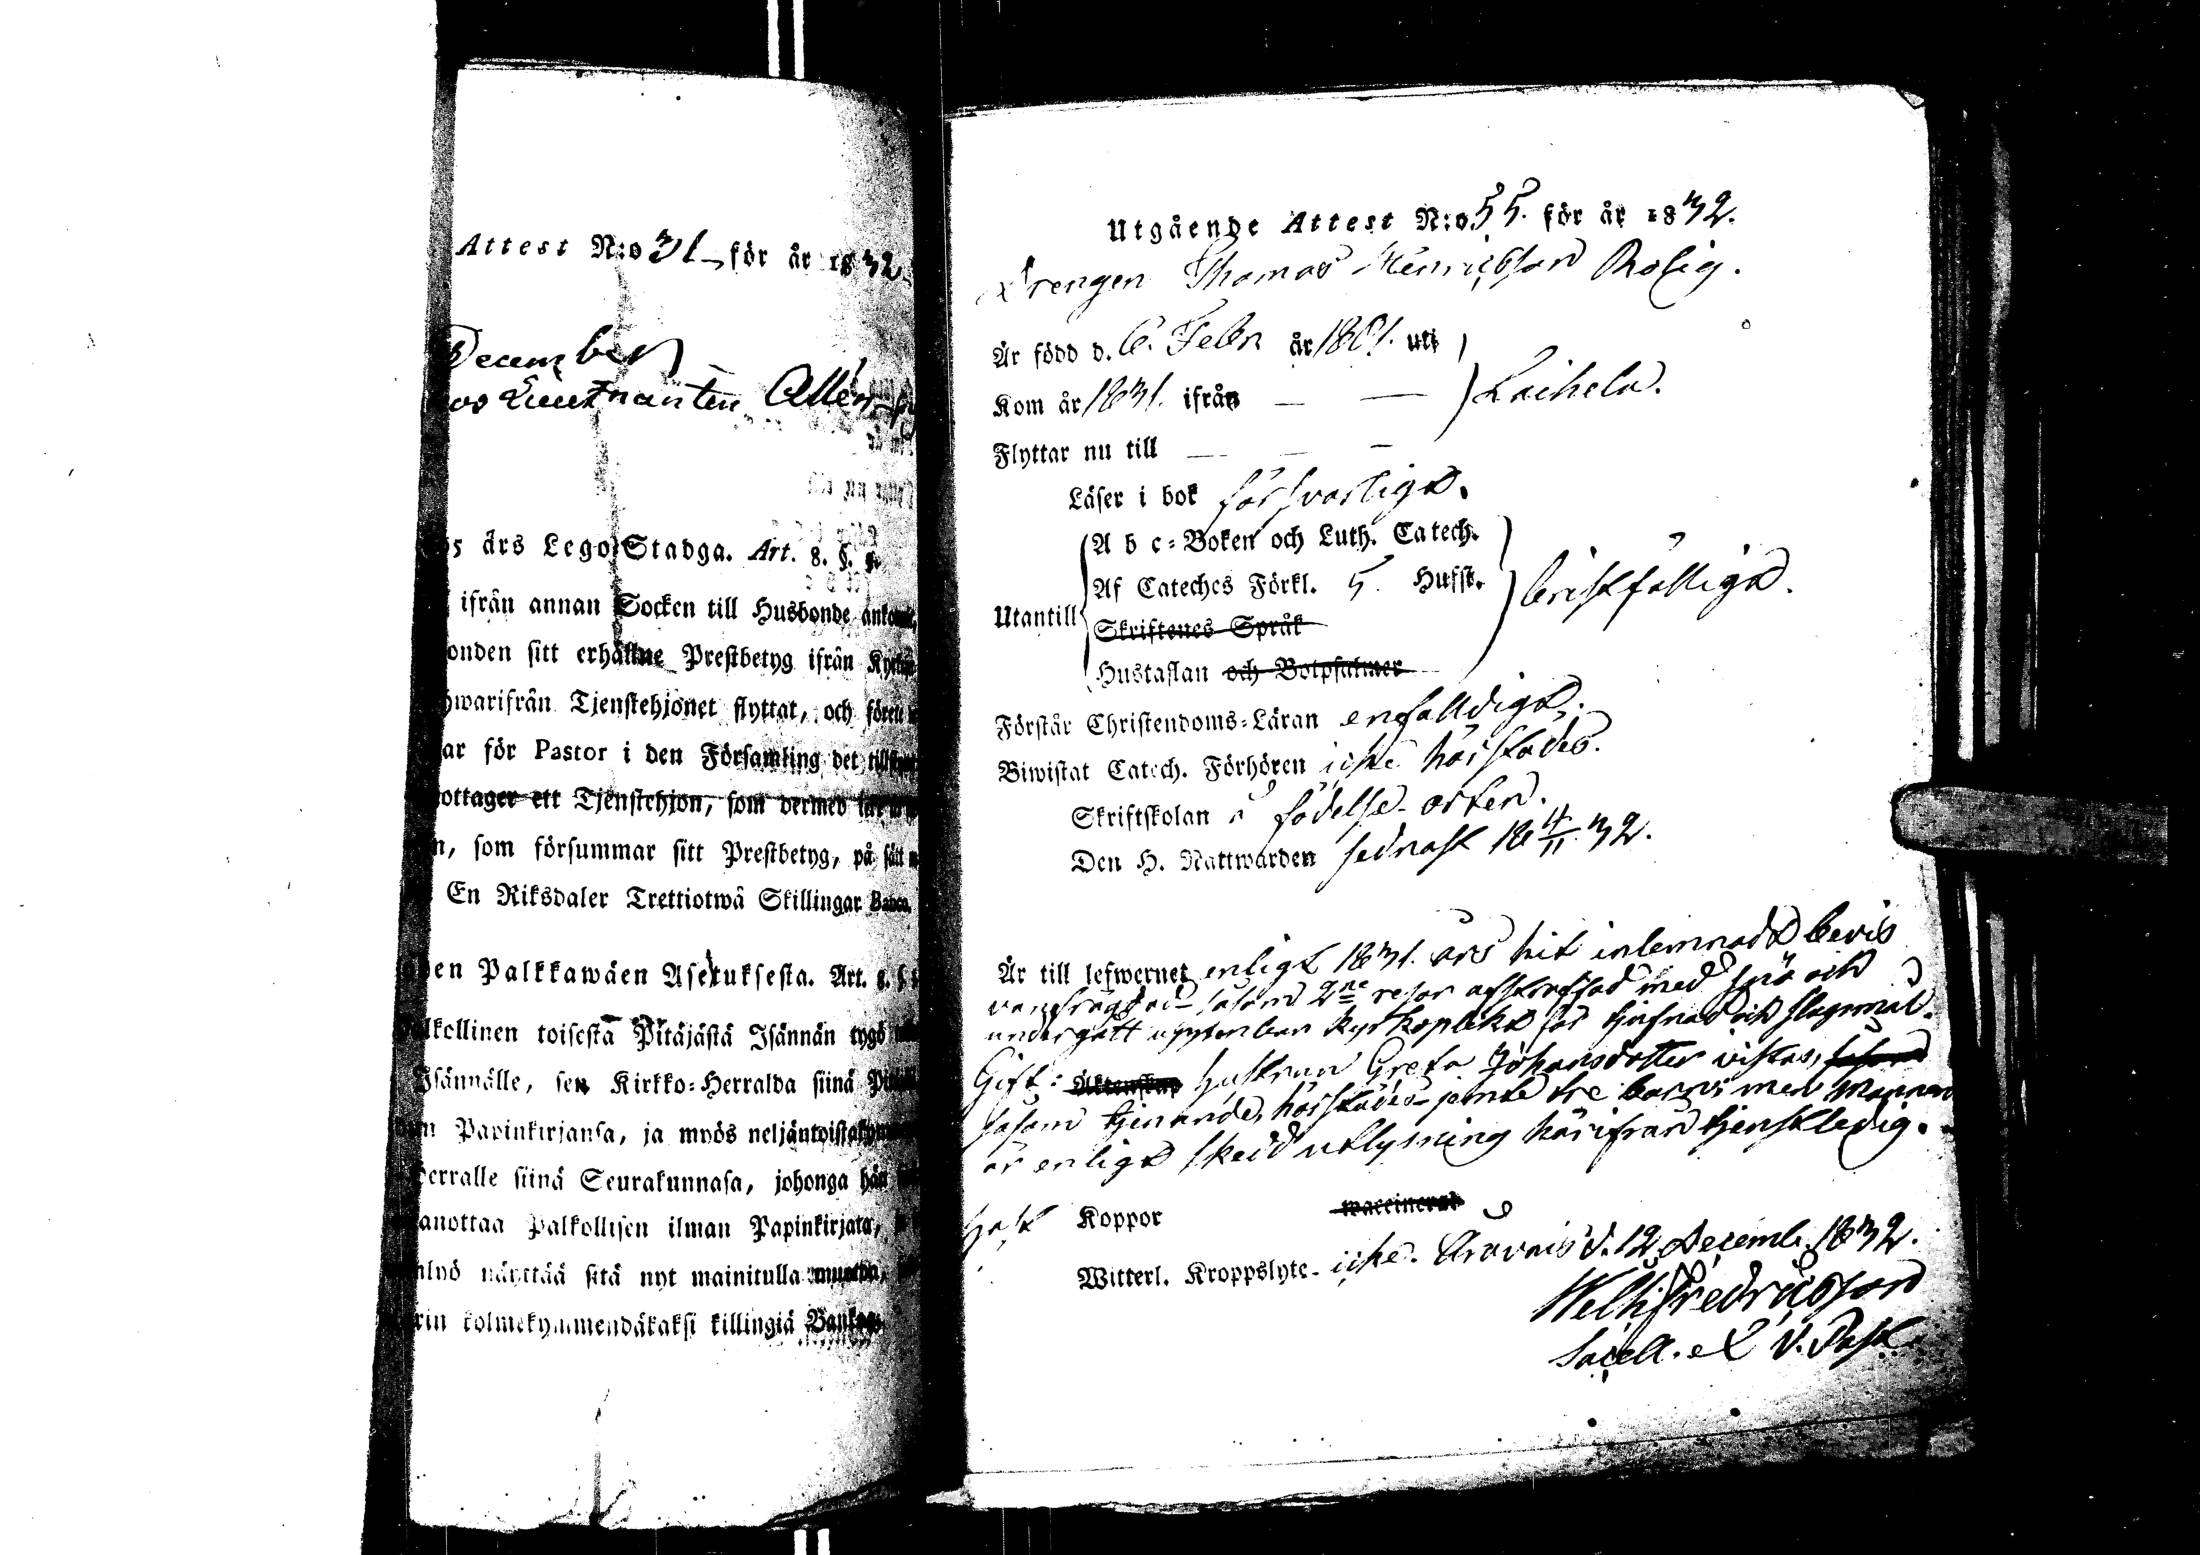 Attest N:o 31 för år 1832.
December
os Lieutnanten
5 års Lego Stadga. Art. 8. §.
ifrån annan Socken till Husbonde
onden sitt erhållne Prestbetyg ifrån
hwarifrån Tjenstehjonet flyttat, och
ar för Pastor i den Församling det
ottager ett Tjenstehjon, som dermed
n, som försummar sitt Prestbetyg, på sätt
En Riksdaler Trettiotwå Skillingar Banco.
en Palkkawäen Asetuksesta. Art. 8. §.
lkollinen toisesta Pitäjästä Isännän tygö
Isännälle, sen Kirkko-Herralda siinä
Papinkirjansa, ja myös
erralle siinä Seurakunnasa, johonga hän
anottaa Palkollisen ilman Papinkirjata,
näyttää sitä nyt mainitulla
rin kolmekymmendäkaksi killingiä
Utgående Attest N:o 55. för år 1832.
Drengen Thomas Henricsson Rolig.
Är född d. 6. Febr år 1801. uti
Kom år 1831. ifrån — — Laihela.
Flyttar nu till — — —
Läser i bok försvarligt.
Abc-Boken och Luth. Catech.
Af Cateches Förkl. 5. Hufst.
Utantill bristfälligt.
Skriftenes Språk
Hustaflan och Botpsalmer
Förstår Christendoms-Läran enfaldigt.
Biwistat Catech. Förhören icke härstädes.
Skriftskolan å födelse-orten.
Den H. Nattwarden sednast 18 4/11 32.
Är till lefwernet enligt 1831. års hit inlemnadt bevis
vanfrägdad såsom 2ne resor afstraffad med spö och
undergått uppenbar kyrkoplikt för tjufnad och slagsmål.
Gift: Äktenskap hustrun Greta Johansdotter vistas, såsom
såsom tjenande, härstädes jemte tre barn; men mannen
är enligt skedd utlysning härifrån tjenstledig.
Haft Koppor waccinerad
Witterl. Kroppslyte icke. Oravais d. 12 Decemb. 1832.
Welh. Fredricsson
Sacell. et V. Past.